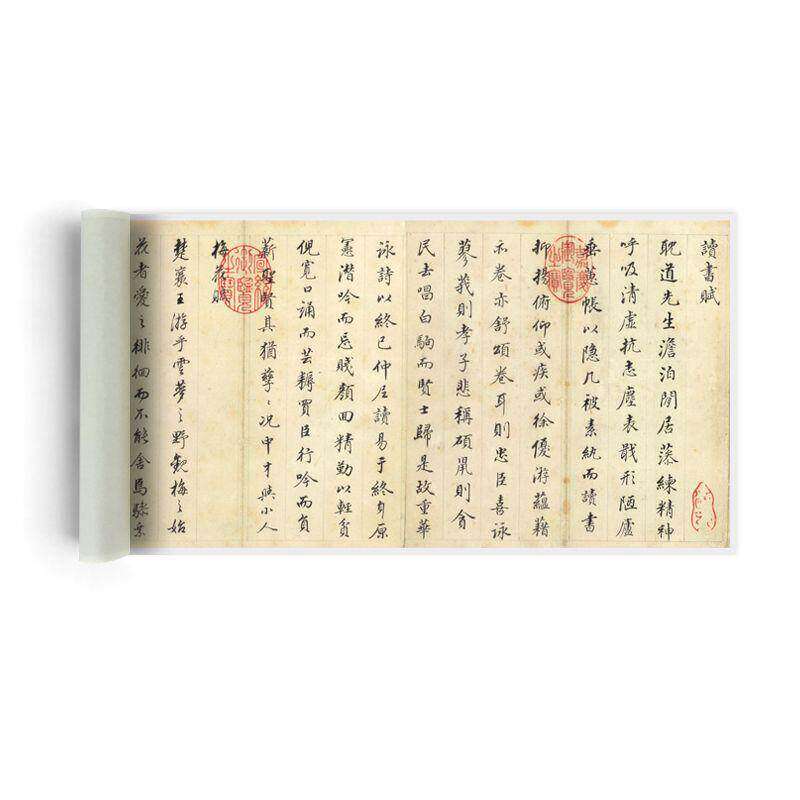 讀書賦
耽道先生澹泊閒居藻練精神
呼吸清虛抗志塵表戢形陋廬
垂蕙帳以隱几被素紈而讀書
抑揚俯仰或疾或徐優游蘊藉
亦卷亦舒頌卷耳則忠臣喜詠
蓼莪則孝子悲稱碩鼠則貪
民去唱白駒而賢士歸是故重華
詠詩以終已仲尼讀易于終身原
憲潛吟而忘賤顏回精勤以輕貧
倪寬口誦而芸耨買臣行吟而負
薪聖賢其猶孳〻況中才與小人
梅花賦
楚襄王游乎雲夢之野觀梅之始
花者愛之徘徊而不能舍焉驂乘
嘉慶御覽之寶
宣統御覽之寶